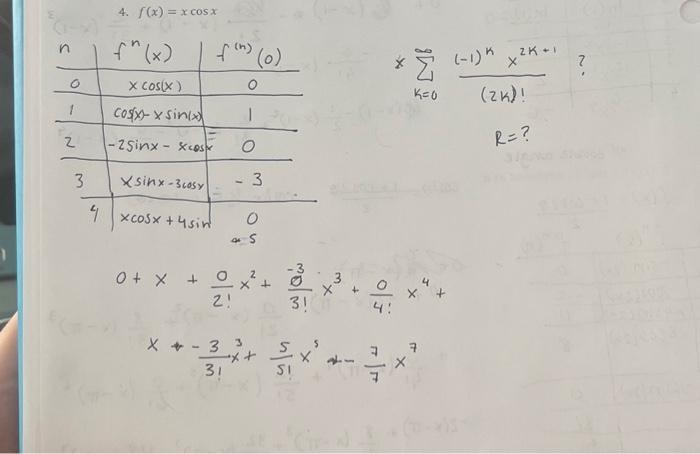 4. f(x) = x cos x
n | fⁿ(x) | f⁽ⁿ⁾(0)
0 | x cos(x) | 0
1 | cos(x) - x sin(x) | 1
2 | -2 sin x - x cos x | 0
3 | x sin x - 3 cos x | -3
4 | x cos x + 4 sin | 0
5
* ∑_{k=0}^{∞} (-1)^k x^{2k+1} / (2k)! ?
R = ?
0 + x + 0/2! x² + -3/3! x³ + 0/4! x⁴ +
x + - 3/3! x³ + 5/5! x⁵ - 7/7 x⁷